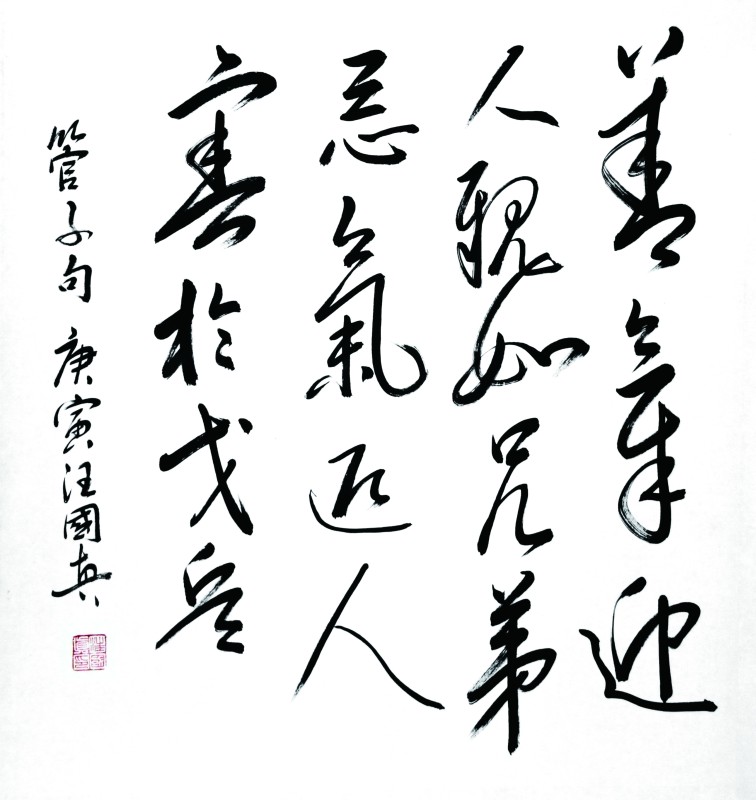 善氣迎
人親如兄弟
惡氣迎人
害於戈兵
管子句 庚寅汪國真